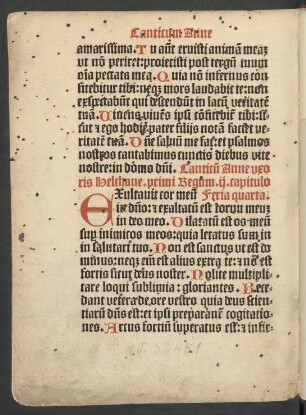 Canticum Anne
amarissima. Tu aũt eruisti animã meaz
ut nõ periret: proiecisti post tergũ tuum
oĩa peccata mea. Quia nõ infernus cõfi
tebitur tibi: neqz mors laudabit te: nõ
expectabũt qui descendũt in lacũ veritatẽ
tuã. Viuens viuẽs ipse cõfitebit tibi: si
cut z ego hodie: pater filijs notã faciet ve
ritatẽ tuã. Dñe saluũ me fac: et psalmos
nostros cantabimus cunctis diebus vite
nostre: in domo dñi. Canticũ Anne vx
oris Helchane. primi Regum. ij. capitulo
Exultauit cor meũ Feria quarta.
in dño: z exaltatũ est cornu meuz
in deo meo. Dilatatũ est os meũ
sup inimicos meos: quia letatus sum in
in salutari tuo. Non est sanctus ut est do
minus: neqz eñ est alius extra te: z nõ est
fortis sicut deus noster. Nolite multipli
care loqui sublimia: gloriantes. Rece
dant vetera de ore vestro quia deus scien
tiarũ dñs est: et ipsi preparantẽ cogitatio
nes. Arcus fortiũ superatus est: z infir-